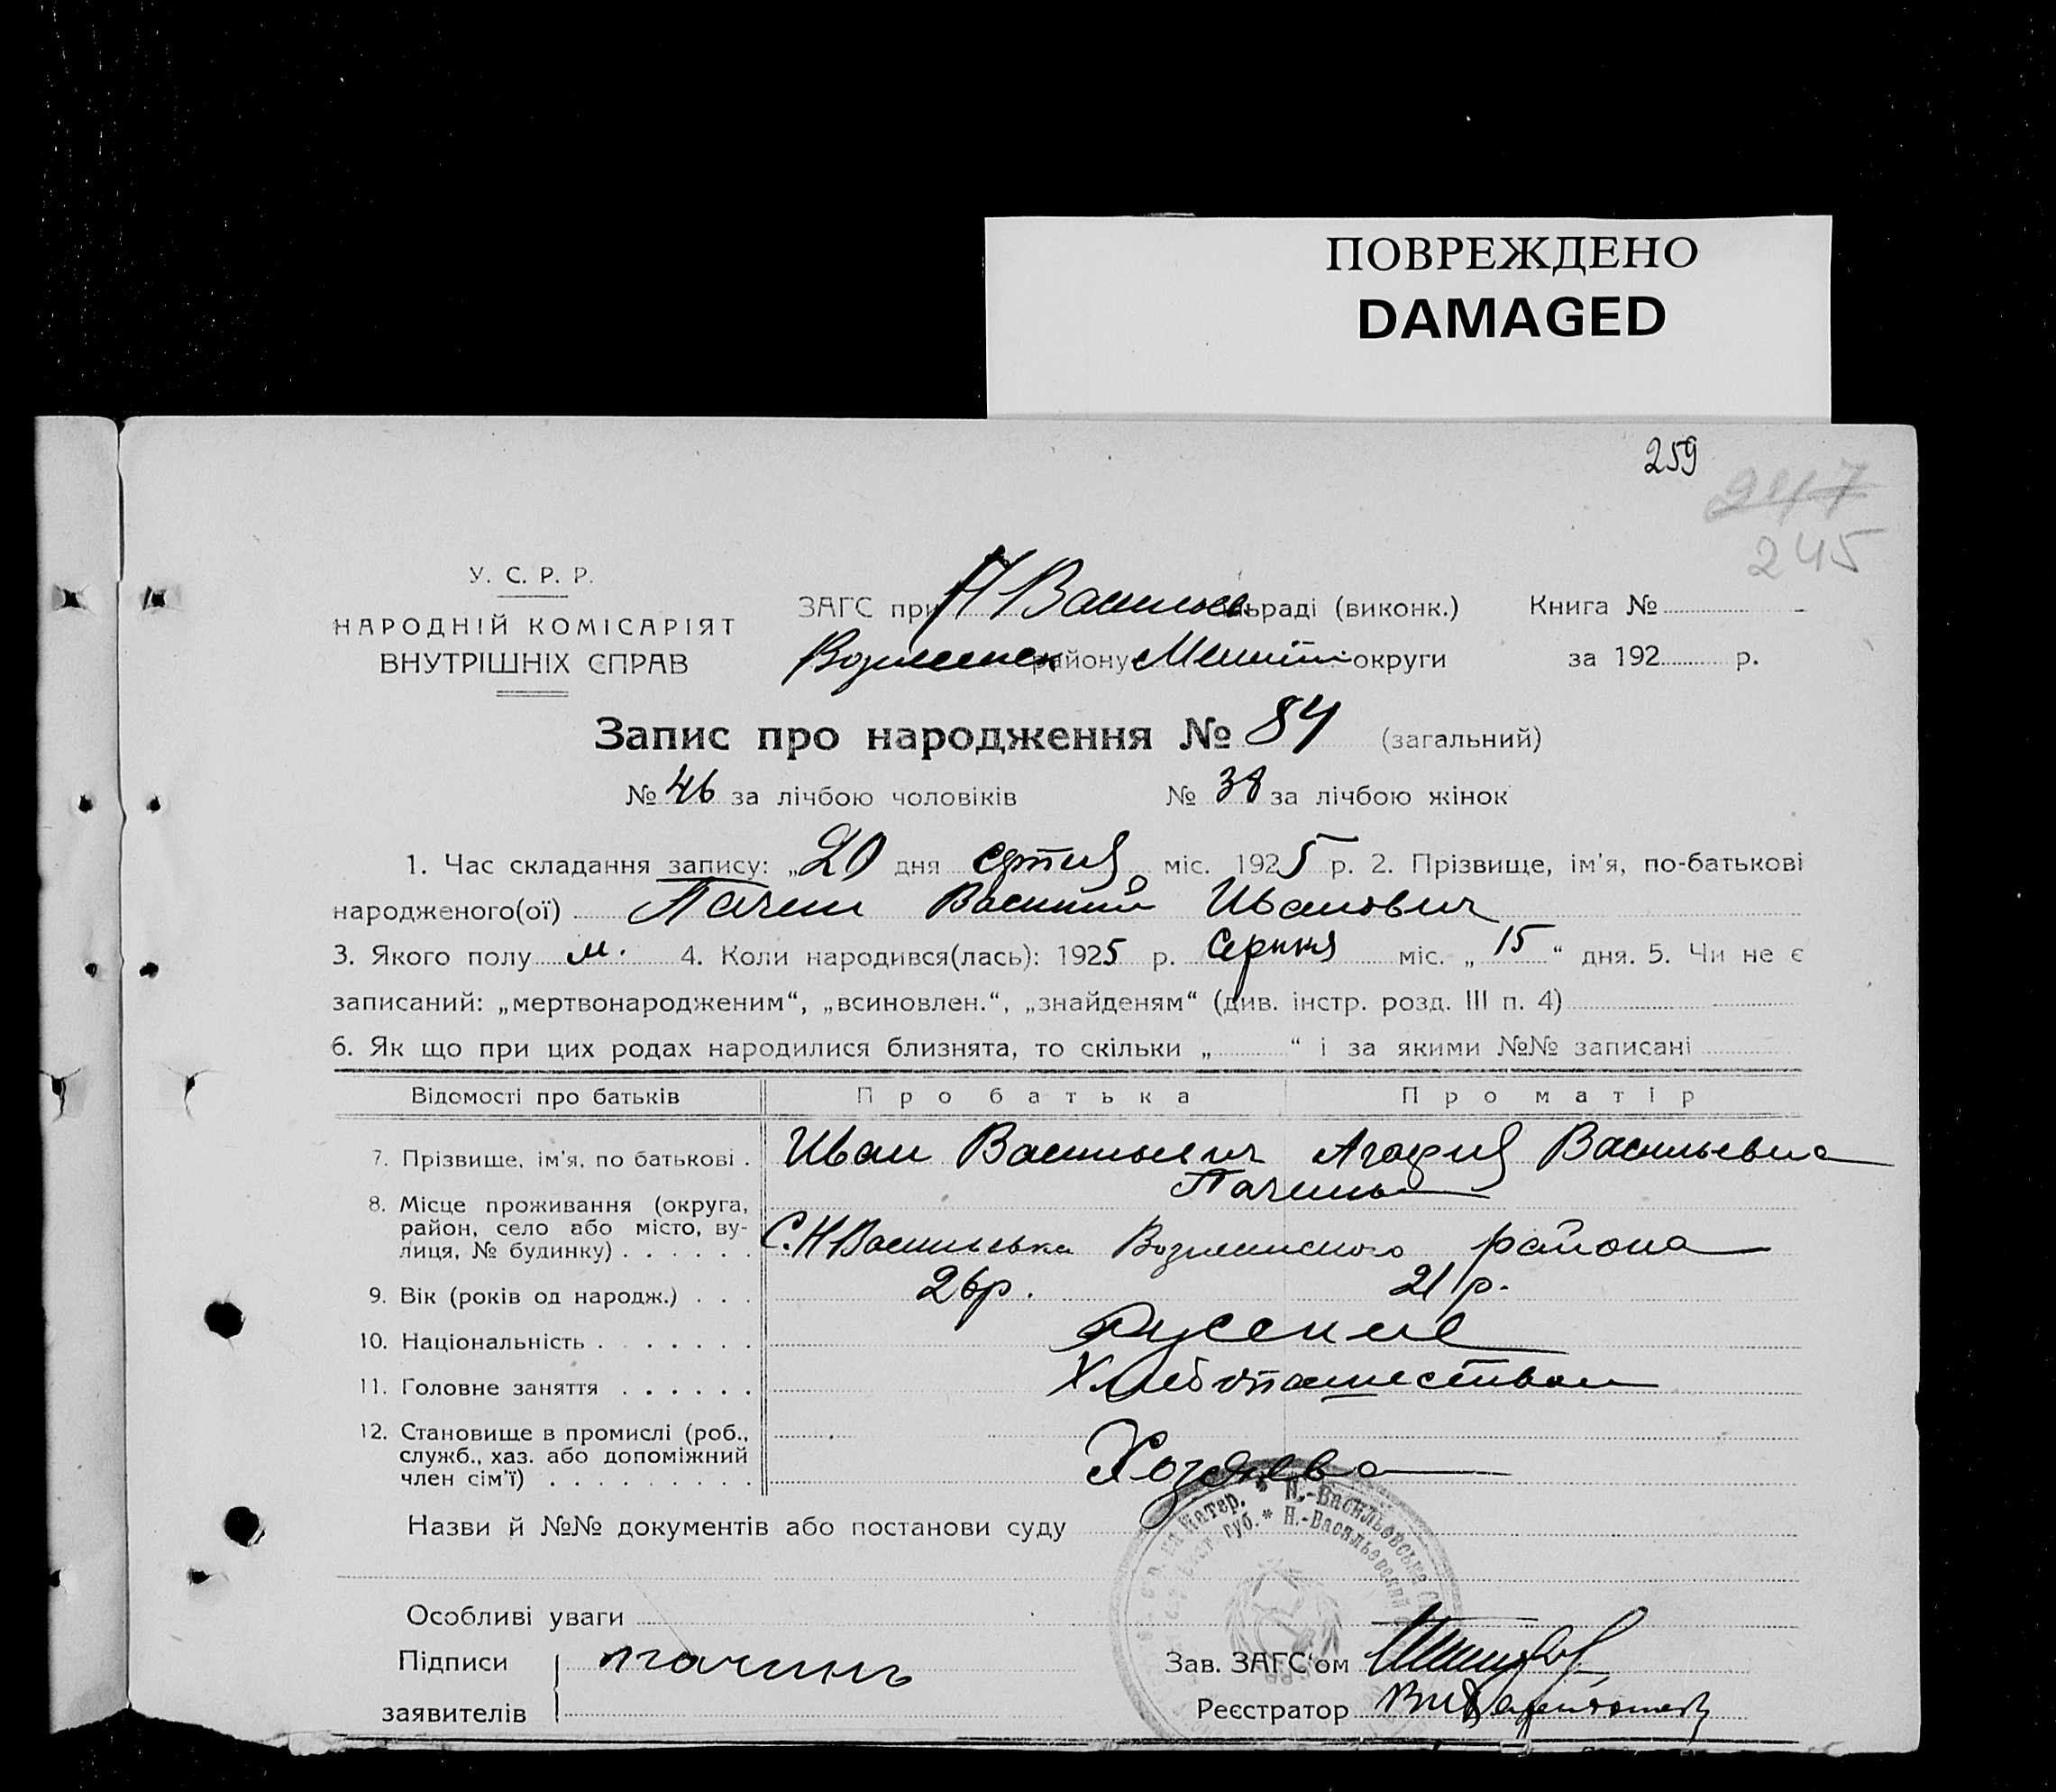 ПОВРЕЖДЕНО
DAMAGED
259
247
245
У. С. Р. Р.
НАРОДНІЙ КОМІСАРІЯТ
ВНУТРІШНІХ СПРАВ
ЗАГС при Н Васильев сільраді (виконк.) Книга №
району округи за 192 р.
Запис про народження № 84 (загальний)
№ 46 за лічбою чоловіків № 38 за лічбою жінок
1. Час складання запису: „20 дня міс. 1925 р. 2. Прізвище, ім'я, по-батькові
народженого(ої) Пачин Василий Иванович
3. Якого полу м. 4. Коли народився(лась): 1925 р. Серпня міс. „15“ дня. 5. Чи не є
записаний: „мертвонародженим“, „всиновлен.“, „знайденям“ (див. інстр. розд. III п. 4)
6. Як що при цих родах народилися близнята, то скільки „ “ і за якими №№ записані
Відомості про батьків Про батька Про матір
7. Прізвище, ім'я, по батькові . Иван Васильевич Агафия Васильевна
Пачины
8. Місце проживання (округа,
район, село або місто, ву-
лиця, № будинку) . . . . . . С. Н Васильевка Вознесенского района
9. Вік (років од народж.) . . . 26 р. 21 р.
10. Національність . . . . . . . Русские
11. Головне заняття . . . . . . Хлебопашество
12. Становище в промислі (роб.,
служб., хаз. або допоміжний
член сім'ї) . . . . . . . . . Хозяева
Назви й №№ документів або постанови суду
Н.-Васильевський
Особливі уваги
Підписи пачинъ Зав. ЗАГС'ом
заявителів Реєстратор